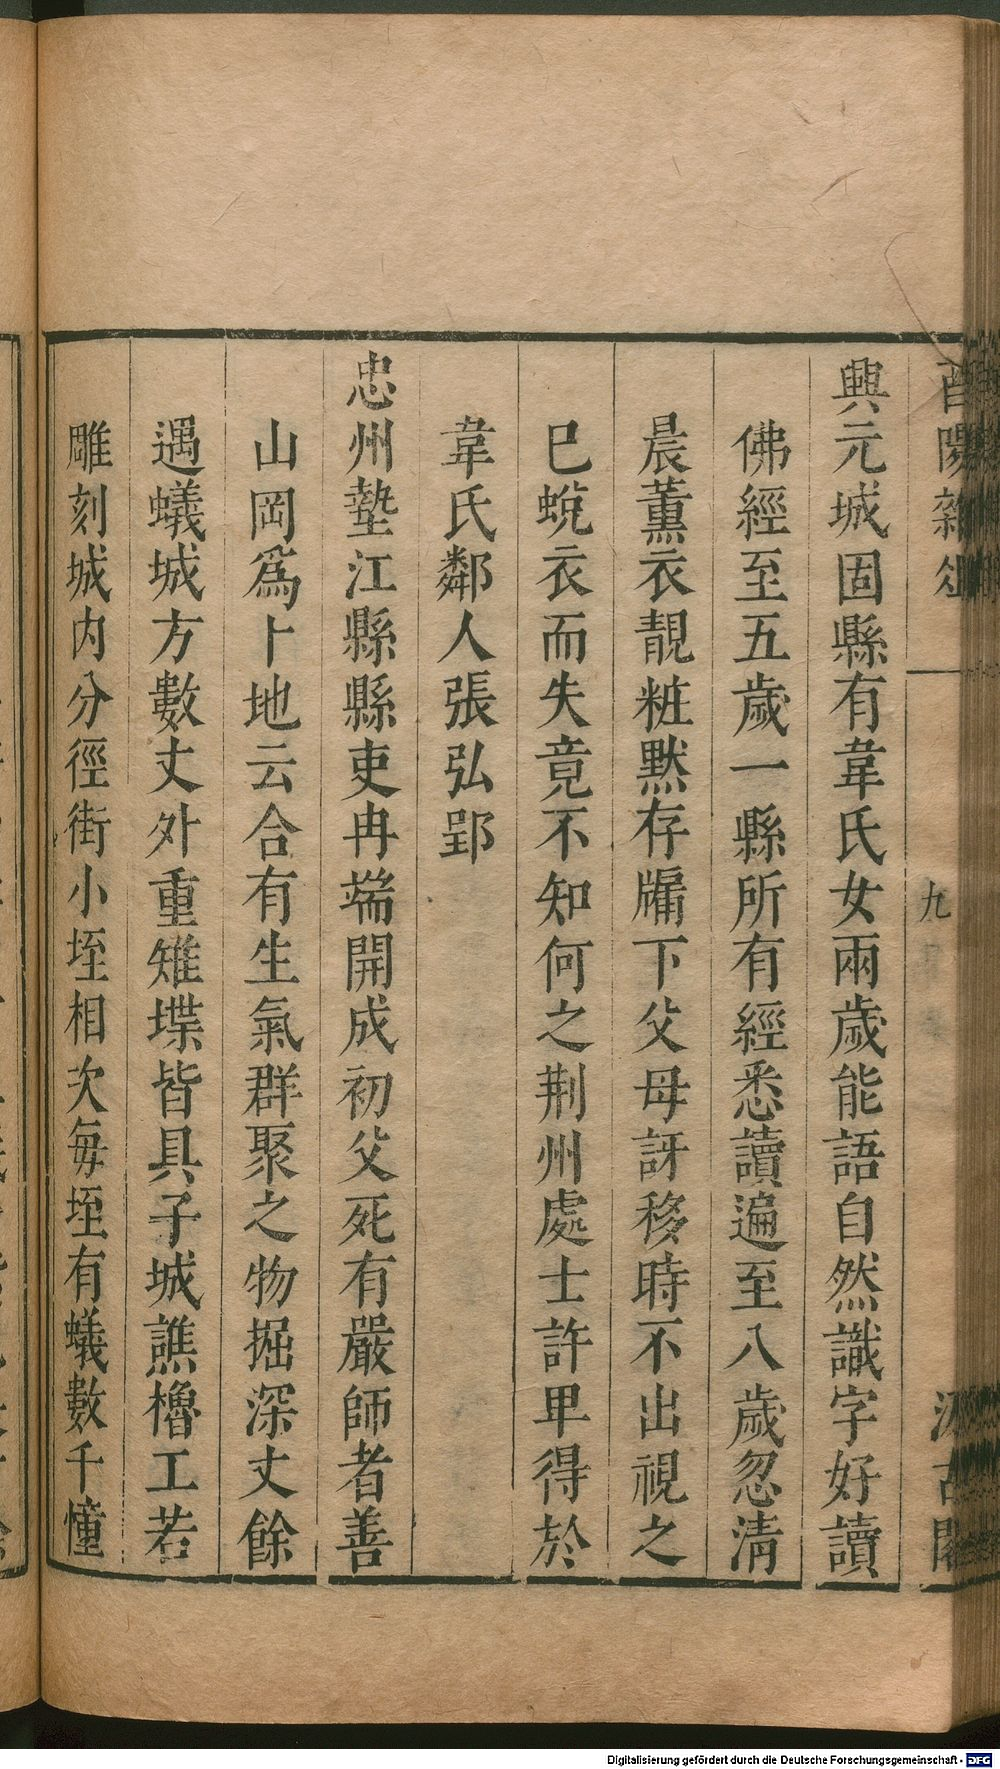 酉陽雜俎
九
汲古閣
興元城固縣有韋氏女兩歲能語自然識字好讀
佛經至五歲一縣所有經悉讀遍至八歲忽清
晨薰衣靚粧默存牖下父母訝移時不出視之
已蛻衣而失竟不知何之荆州處士許卑得於
韋氏鄰人張弘郢
忠州墊江縣縣吏冉端開成初父死有嚴師者善
山岡爲卜地云合有生氣群聚之物掘深丈餘
遇蟻城方數丈外重雉堞皆具子城譙櫓工若
雕刻城内分徑街小垤相次每垤有蟻數千憧
Digitalisierung gefördert durch die Deutsche Forschungsgemeinschaft - DFG